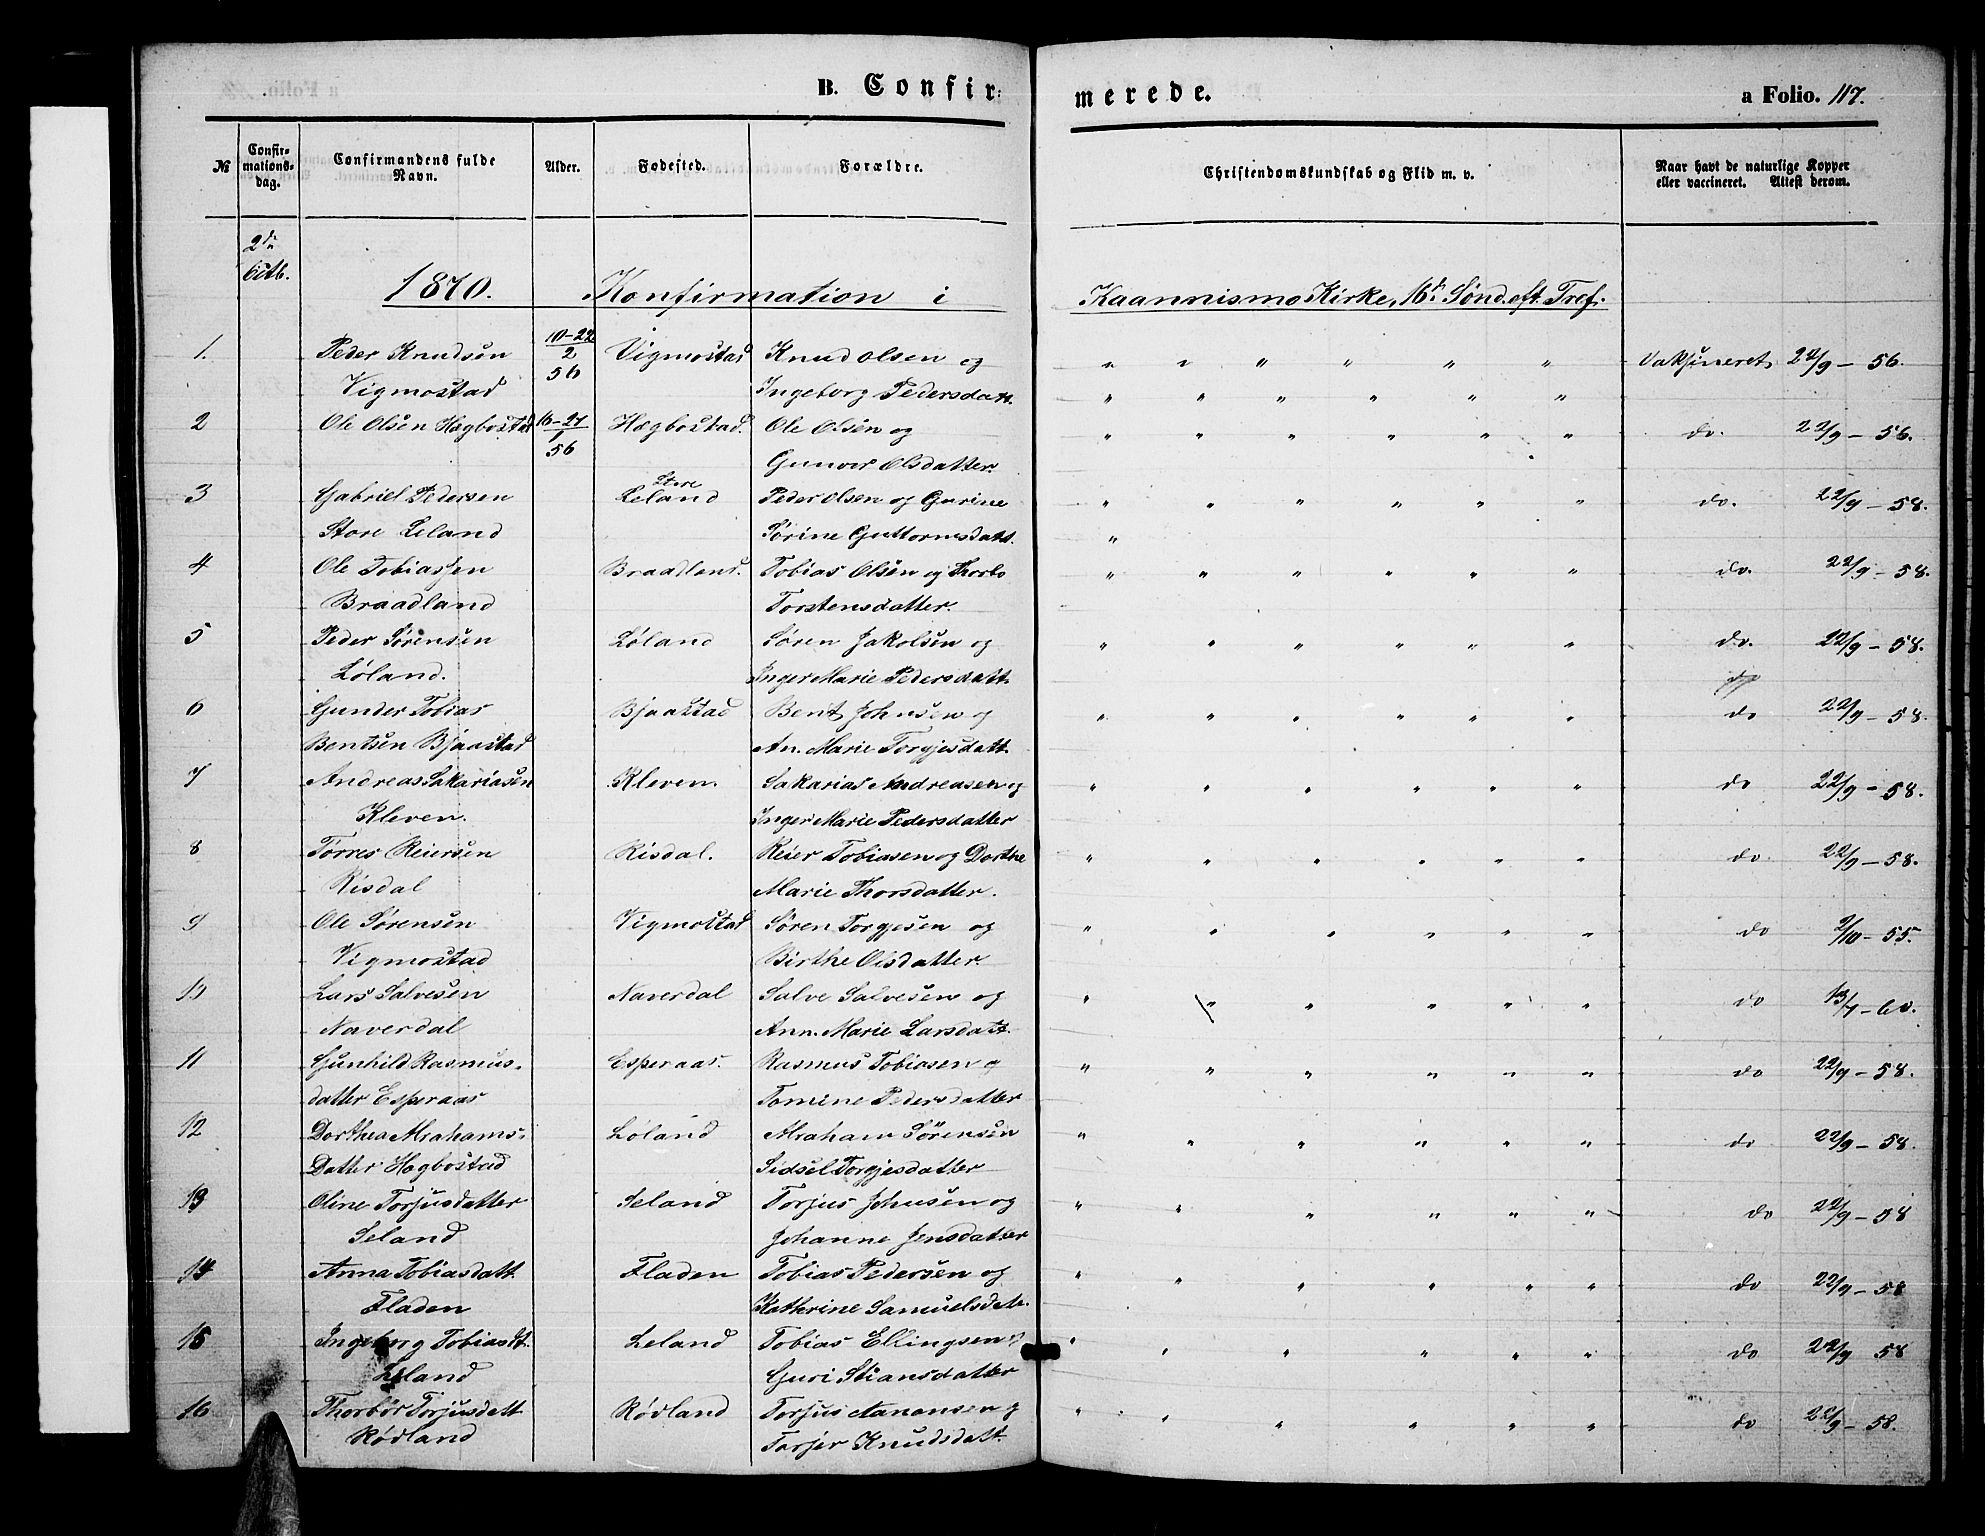 B. Confir-
merede.
a Folio. 117.
№
Confir-
mations-
dag.
Confirmandens fulde
Navn.
Alder.
Fødested.
Forældre.
Christendomskundskab og Flid m. v.
Naar havt de naturlige Kopper
eller vaccineret. Attest derom.
2den
Octb.
1870. Konfirmation i Kirke, 16de Sønd. eft. Tref.
1. Peder Knudsen 10-22/2 Vigmostad Knud Olsen og " " " " " " Vaksineret 22/9 - 56.
Vigmostad 56 Ingeborg Pedersdatt. " " " " " "
2 Ole Olsen Hægbostad 16-27/1 Hægbostad. Ole Olsen og " " " " " " do. 22/9 - 56.
56 Gunver Olsdatter.
3 Gabriel Pedersen Store Leland Peder Olsen og Gurine " " " " " " do. 22/9 - 58.
Store Leland Sørine Guttormsdatt. "
4 Ole Tobiassen Braadland. Tobias Olsen og Thorbo " " " " " " do. 22/9 - 58.
Braadland Torstensdatter.
5 Peder Sørensen Løland Søren Jakobsen og " " " " " " do. 22/9 - 58.
Løland. Inger Marie Pedersdatt.
6 Gunder Tobias Bjaastad Bent Johnsen og " " " " " " do 22/9 - 58.
Bentsen Bjaastad An. Marie Torgjesdatt.
7 Andreas Sakariasen Kleven. Sakarias Andreasen og " " " " " " do 22/9 - 58.
Kleven. Inger Marie Pedersdatter
8 Torres Reiersen Risdal. Reier Tobiasen og Dorthe " " " " " " do. 22/9 - 58.
Risdal Marie Thorsdatter.
9 Ole Sørensen Vigmostad Søren Torgjesen og " " " " " " do 2/10 - 55.
Vigmostad Birthe Olsdatter.
10 Lars Salvesen Naverdal Salve Salvesen og " " " " " " do 13/7 - 60.
Naverdal Ann. Marie Larsdatt.
11 Gunhild Rasmus- Esperaas. Rasmus Tobiasen og " " " " " " do 22/9 - 58.
datter Esperaas Tomine Pedersdatter
12 Dorthea Abrahams- Løland Abraham Sørensen " " " " " " do 22/9 - 58.
Datter Hægbostad Sidsel Torgjesdatter
13 Oline Torjusdatter Seland Torjus Johnsen og " " " " " " do 22/9 - 58
Seland Johanne Jensdatter
14 Anna Tobiasdatt Fladen Tobias Pedersen og " " " " " " do 22/9 - 58
Fladen Kathrine Samuelsdatt.
15 Ingeborg Tobiasdt. Leland Tobias Ellingsen og " " " " " " do 22/9 58
Leland Guri Stiansdatter
16 Thorbør Torjusdatt Rødland Torjus Aanonsen og " " " " " " do 22/9 - 58.
Rødland Torjer Knudsdatt.